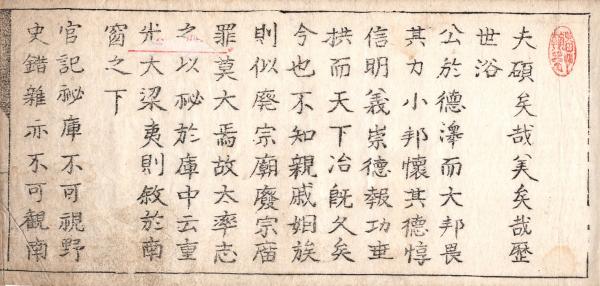 夫碩矣哉美矣哉歷
世浴
公於德澤而大邦畏
其力小邦懷其德惇
信明義崇德報功垂
拱而天下冶既久矣
今也不知親戚姻族
則似廢宗廟廢宗廟
罪莫大焉故太率志
之以祕於庫中云重
光大梁夷則敘於南
窗之下
官記祕庫不可視野
史錯雜亦不可觀南